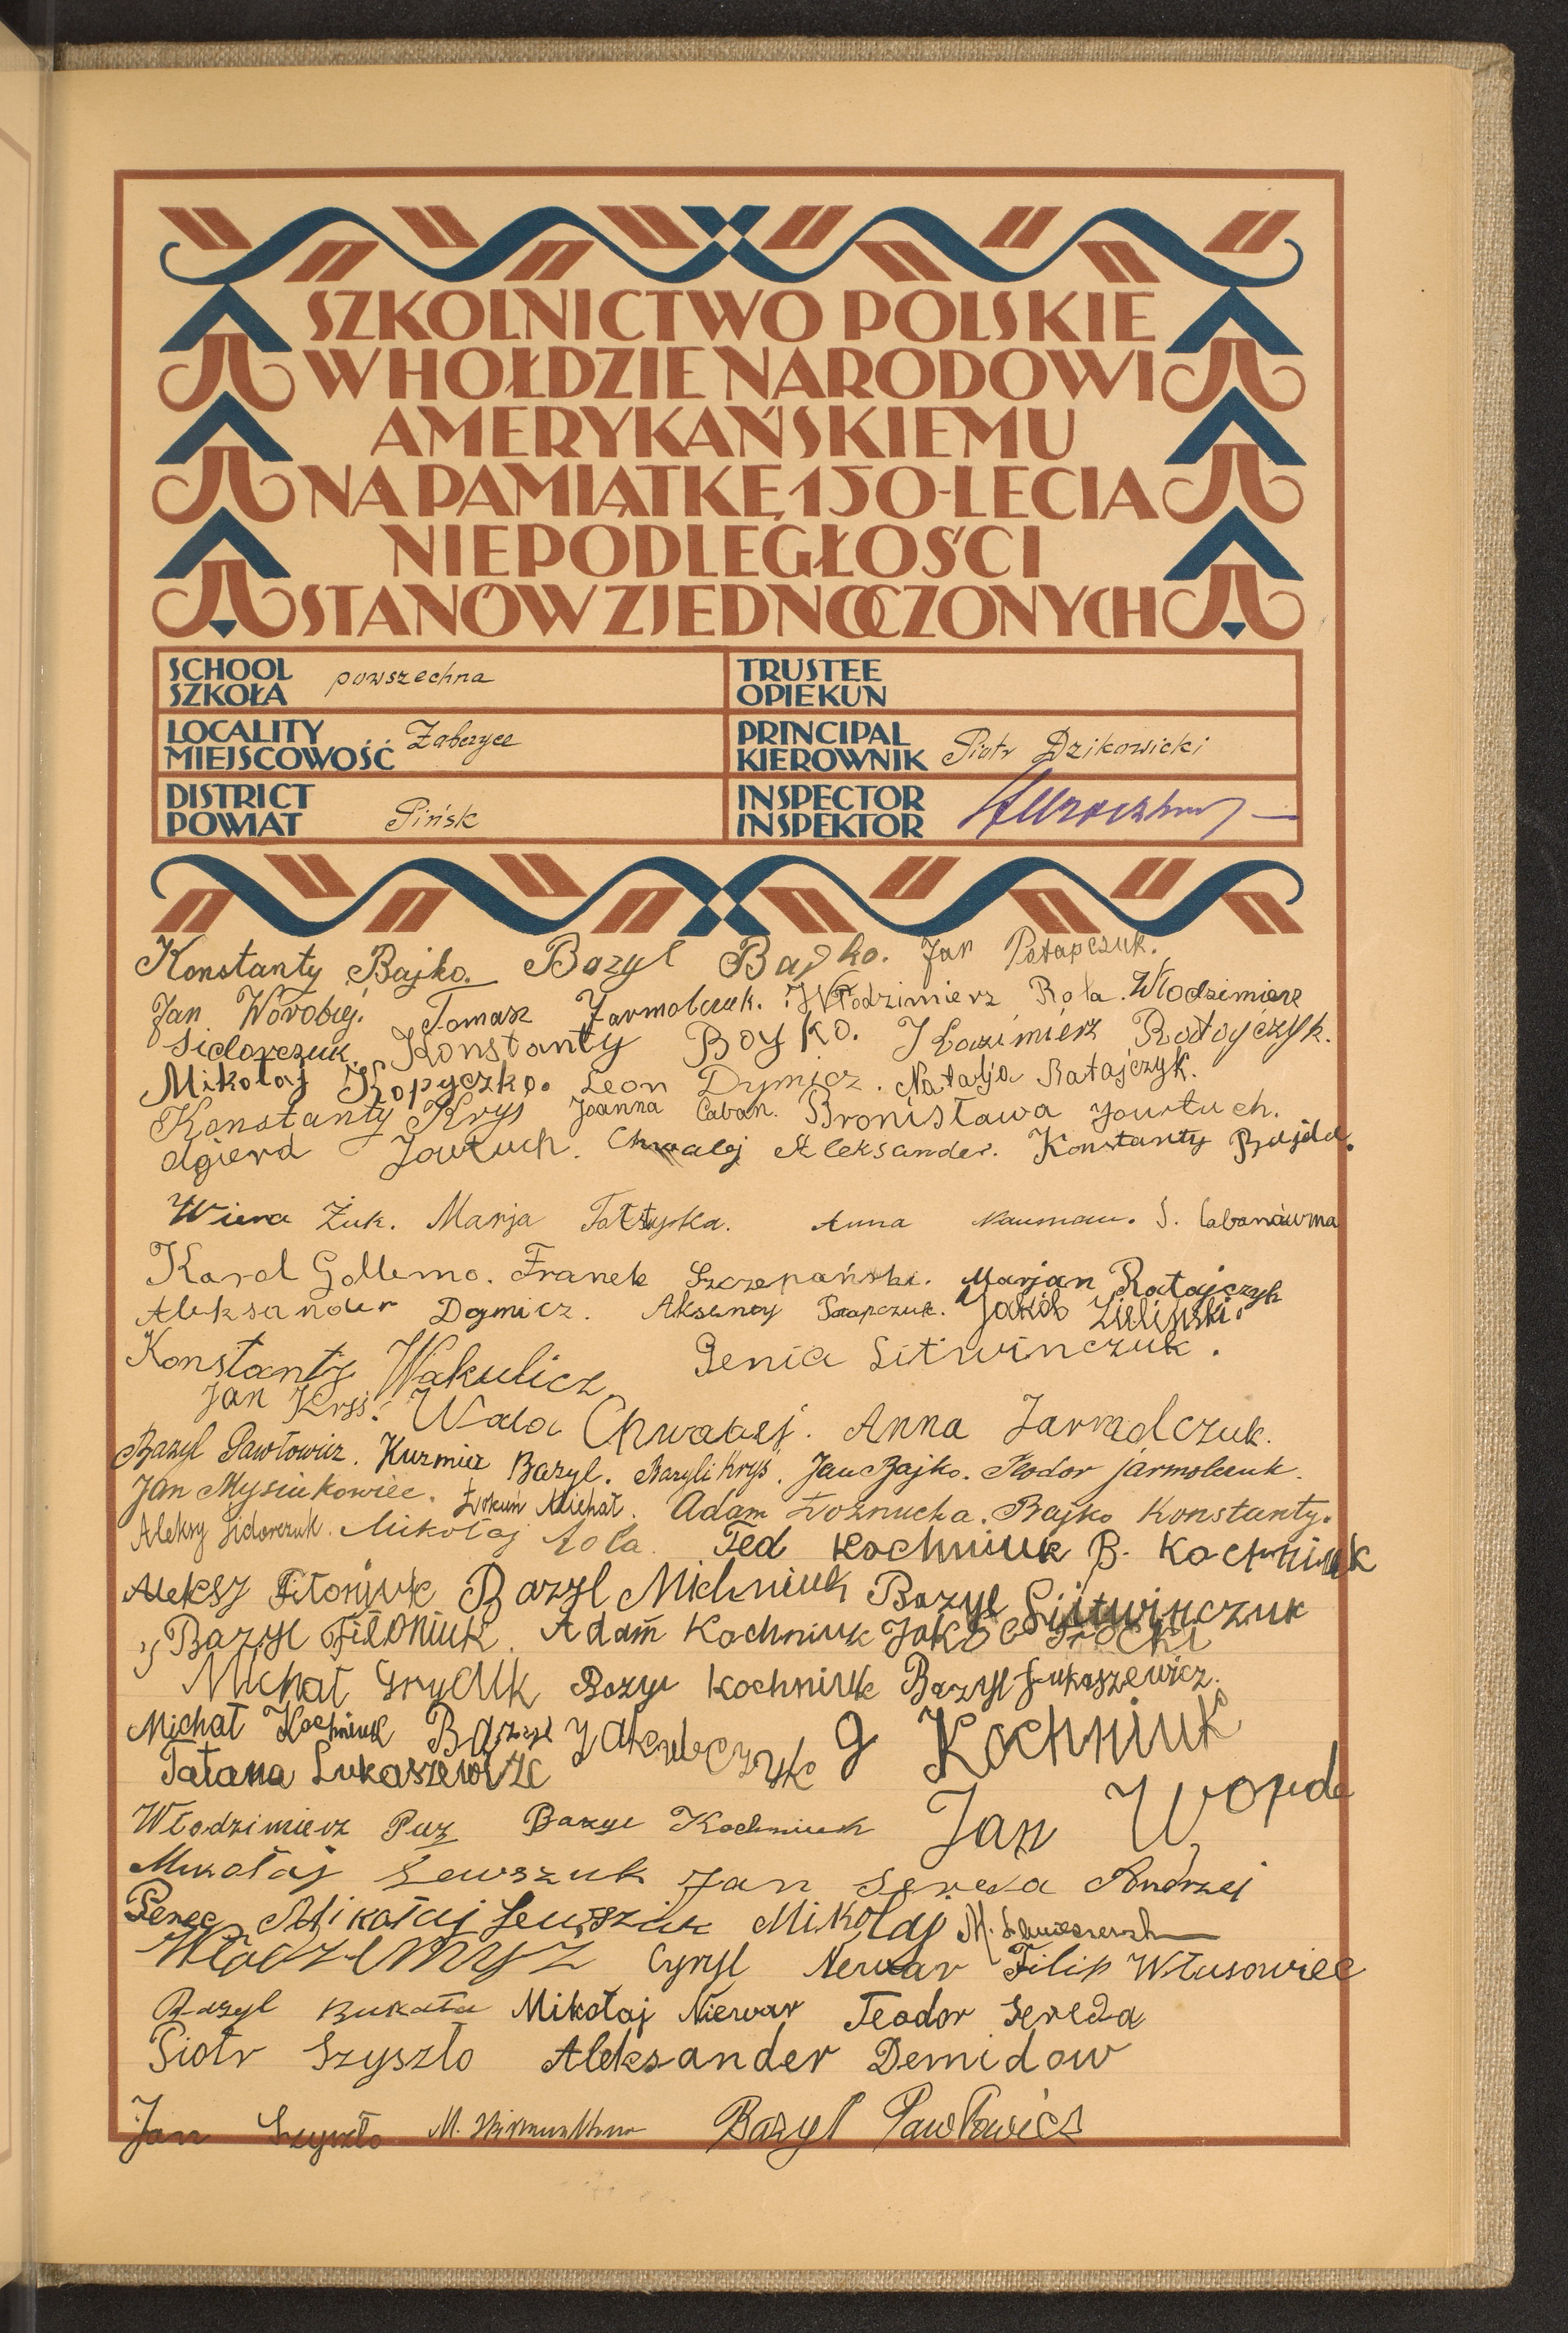 SZKOLNICTWO POLSKIE
W HOŁDZIE NARODOWI
AMERYKAŃSKIEMU
NA PAMIĄTKĘ 150-LECIA
NIEPODLEGŁOŚCI
STANÓW ZJEDNOCZONYCH
SCHOOL
SZKOŁA powszechna
TRUSTEE
OPIEKUN
LOCALITY
MIEJSCOWOŚĆ Zabczyce
PRINCIPAL
KIEROWNIK Piotr Dzikowicki
DISTRICT
POWIAT Pińsk
INSPECTOR
INSPEKTOR
Konstanty Bajko. Bazyl Bajko. Jan Potapczuk.
Jan Worobiej. Tomasz Jarmolczuk. Włodzimierz Rola. Włodzimierz
Sidorczuk. Konstanty Boyko. Kazimierz Ratajczyk.
Mikołaj Kopyczko. Leon Dymicz. Natalja Ratajczyk.
Konstanty Kryś Joanna Caban. Bronisława Jourtuch.
Olgierd Jawtuch. Chwalej Aleksander. Konstanty Bajda.
Wiera Żuk. Marja Anna Nauman. S. Cabanówna
Karol Franek Szczepański. Marjan Ratajczyk
Aleksander Dymicz. Aksenty Potapczuk. Jakób Zieliński.
Konstanty Wakulicz Genia Litwinczuk.
Jan Kryś. Wala Chwalej. Anna Jarmolczuk.
Bazyl Pawłowicz. Kuzmicz Bazyl. Bazyli Kryś. Jan Bajko. Teodor Jarmolczuk.
Jan Mysiukowiec. Łokuń Michał. Adam Łoznucha. Bajko Konstanty.
Aleksy Sidorczuk. Mikołaj Rola. Fed Kochniuk B. Kochniuk
Aleksy Bazyl Michniuk Bazyl Litwinczuk
Bazyl Filoniuk. Adam Kochniuk Jakób
Michał Grycuk Bazyl Kochniuk Bazyl Łukaszewicz.
Michał Kochniuk Bazyl Jakubczyk J Kochniuk
Tatana Łukaszewicz
Włodzimierz Puz Bazyl Kochniuk Jan
Mikołaj Lewszuk Jan Sereda Andrzej
Mikołaj Lewszuk Mikołaj
Cyryl Newar Filip Włusowiec
Bazyl Bukata Mikołaj Niewar Teodor Sereda
Piotr Szyszło Aleksander Demidow
Jan Szyszło M. Bazyl Pawłowicz